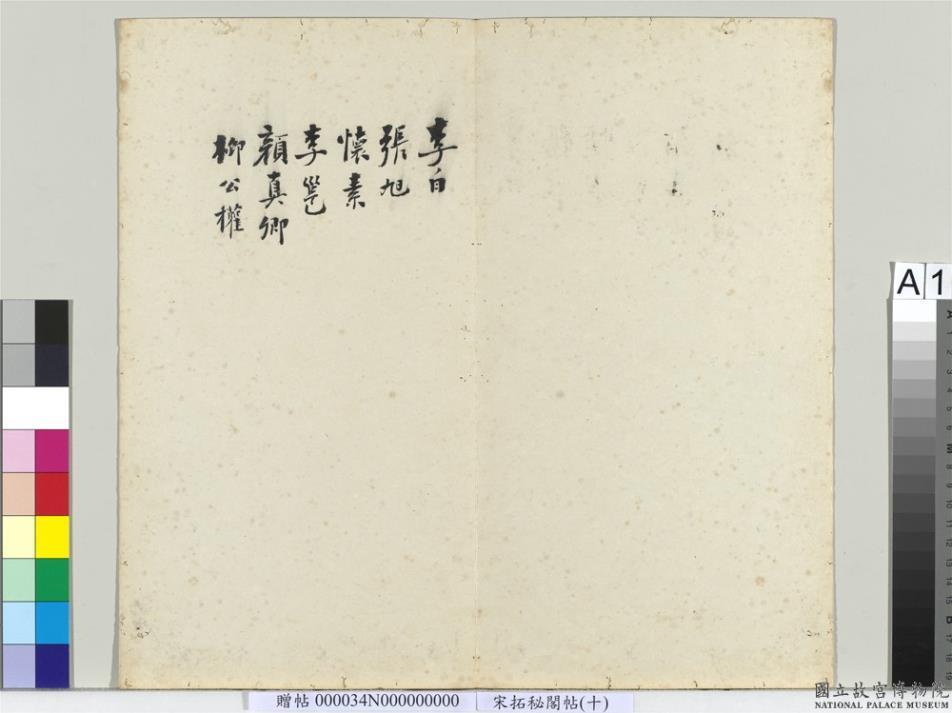 李白
張旭
懷素
李邕
顏真卿
柳公權
A 1
贈帖 000034N000000000 宋拓秘閣帖(十)
國立故宮博物院
NATIONAL PALACE MUSEUM